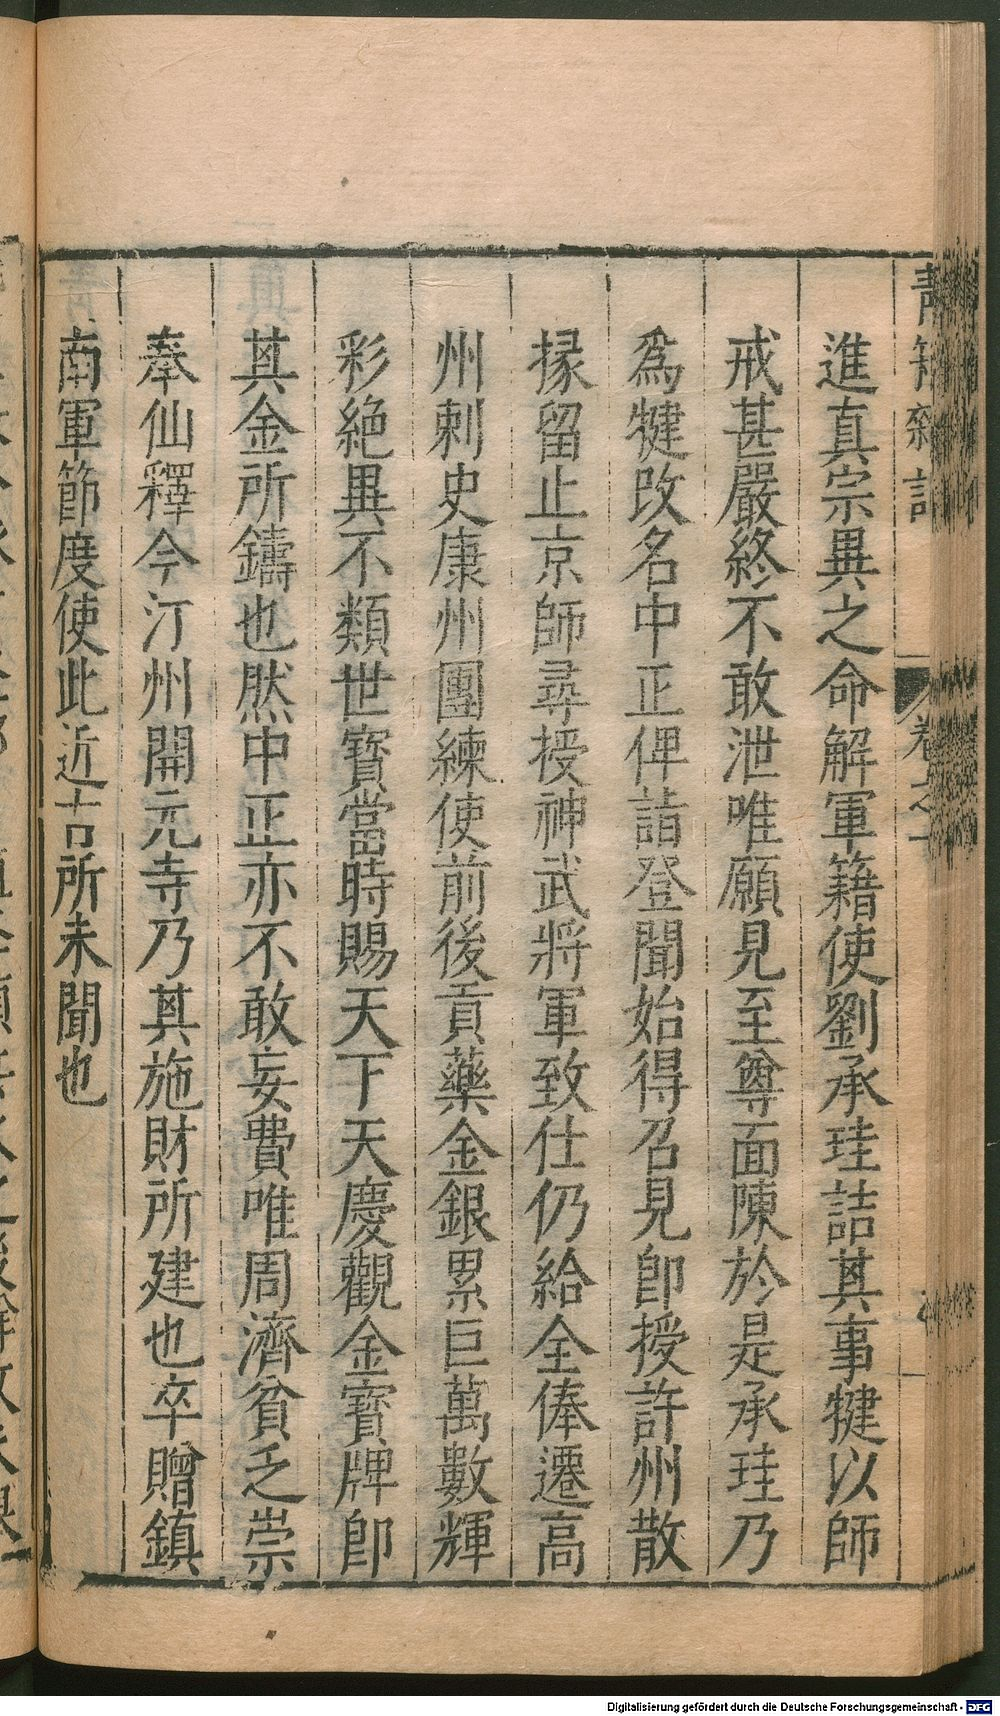 進真宗異之命解軍籍使劉承珪詰其事犍以師
戒甚嚴終不敢泄唯願見至尊面陳於是承珪乃
為犍改名中正俾詣登聞始得召見即授許州散
掾留止京師尋授神武將軍致仕仍給全俸遷高
州刺史康州團練使前後貢藥金銀累巨萬數輝
彩絶異不類世寶當時賜天下天慶觀金寶牌即
其金所鑄也然中正亦不敢妄費唯周濟貧乏崇
奉仙釋今汀州開元寺乃其施財所建也卒贈鎮
南軍節度使此近古所未聞也
卷之一
Digitalisierung gefördert durch die Deutsche Forschungsgemeinschaft - DFG